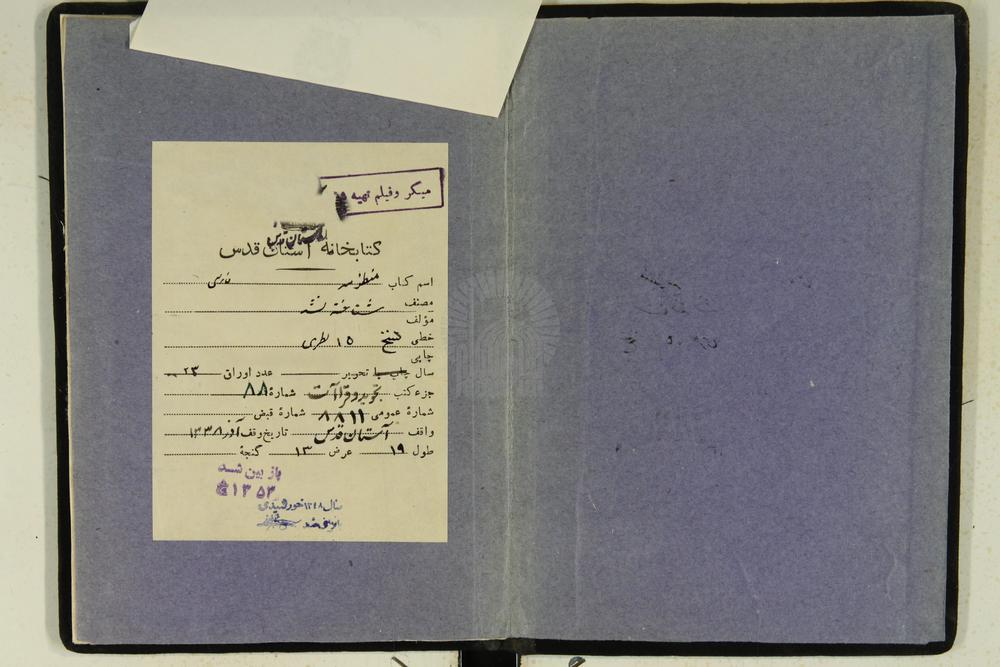 میکر وفیلم تهیه
کتابخانه آستان قدس
اسم کتاب منظومه فارسی
مصنف
مؤلف شناخته نشد
خطی نسخ ۱۵ سطری
چاپی
سال چاپ یا تحریر عدد اوراق ۲۳
جزء کتب تجوید و قراآت شمارهٔ ۸۸
شمارهٔ عمومی ۸۸۱۱ شمارهٔ قبض
واقف آستان قدس تاریخ وقف آذر ۱۳۳۸
طول ۱۹ عرض ۱۳ گنجهٔ
باز بین شد
۱۳۵۳
سال ۱۳۴۸ خورشیدی
بازبینی شد